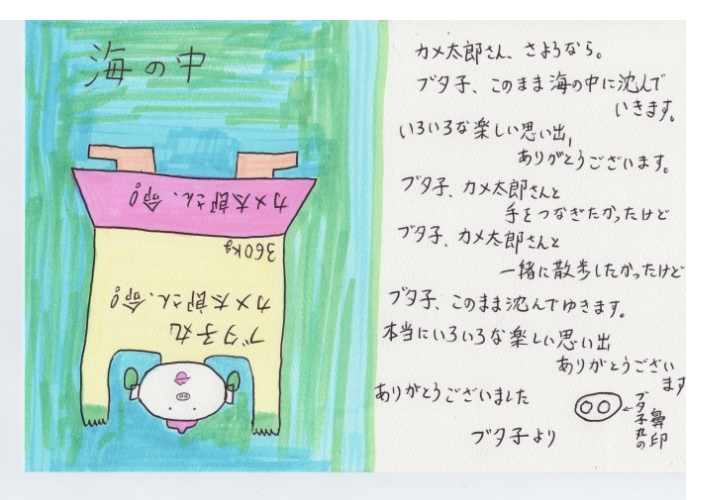 海の中
カメ太郎さん、命!
360kg
カメ太郎さん、命!
ブタ子丸
カメ太郎さん、さようなら。
ブタ子、このまま海の中に沈んで
いきます。
いろいろな楽しい思い出、
ありがとうございます。
ブタ子、カメ太郎さんと
手をつなぎたかったけど
ブタ子、カメ太郎さんと
一緒に散歩したかったけど
ブタ子、このまま沈んでゆきます。
本当にいろいろな楽しい思い出
ありがとうござい
ます
ありがとうございました
ブタ子より
ブタ子丸の
鼻印